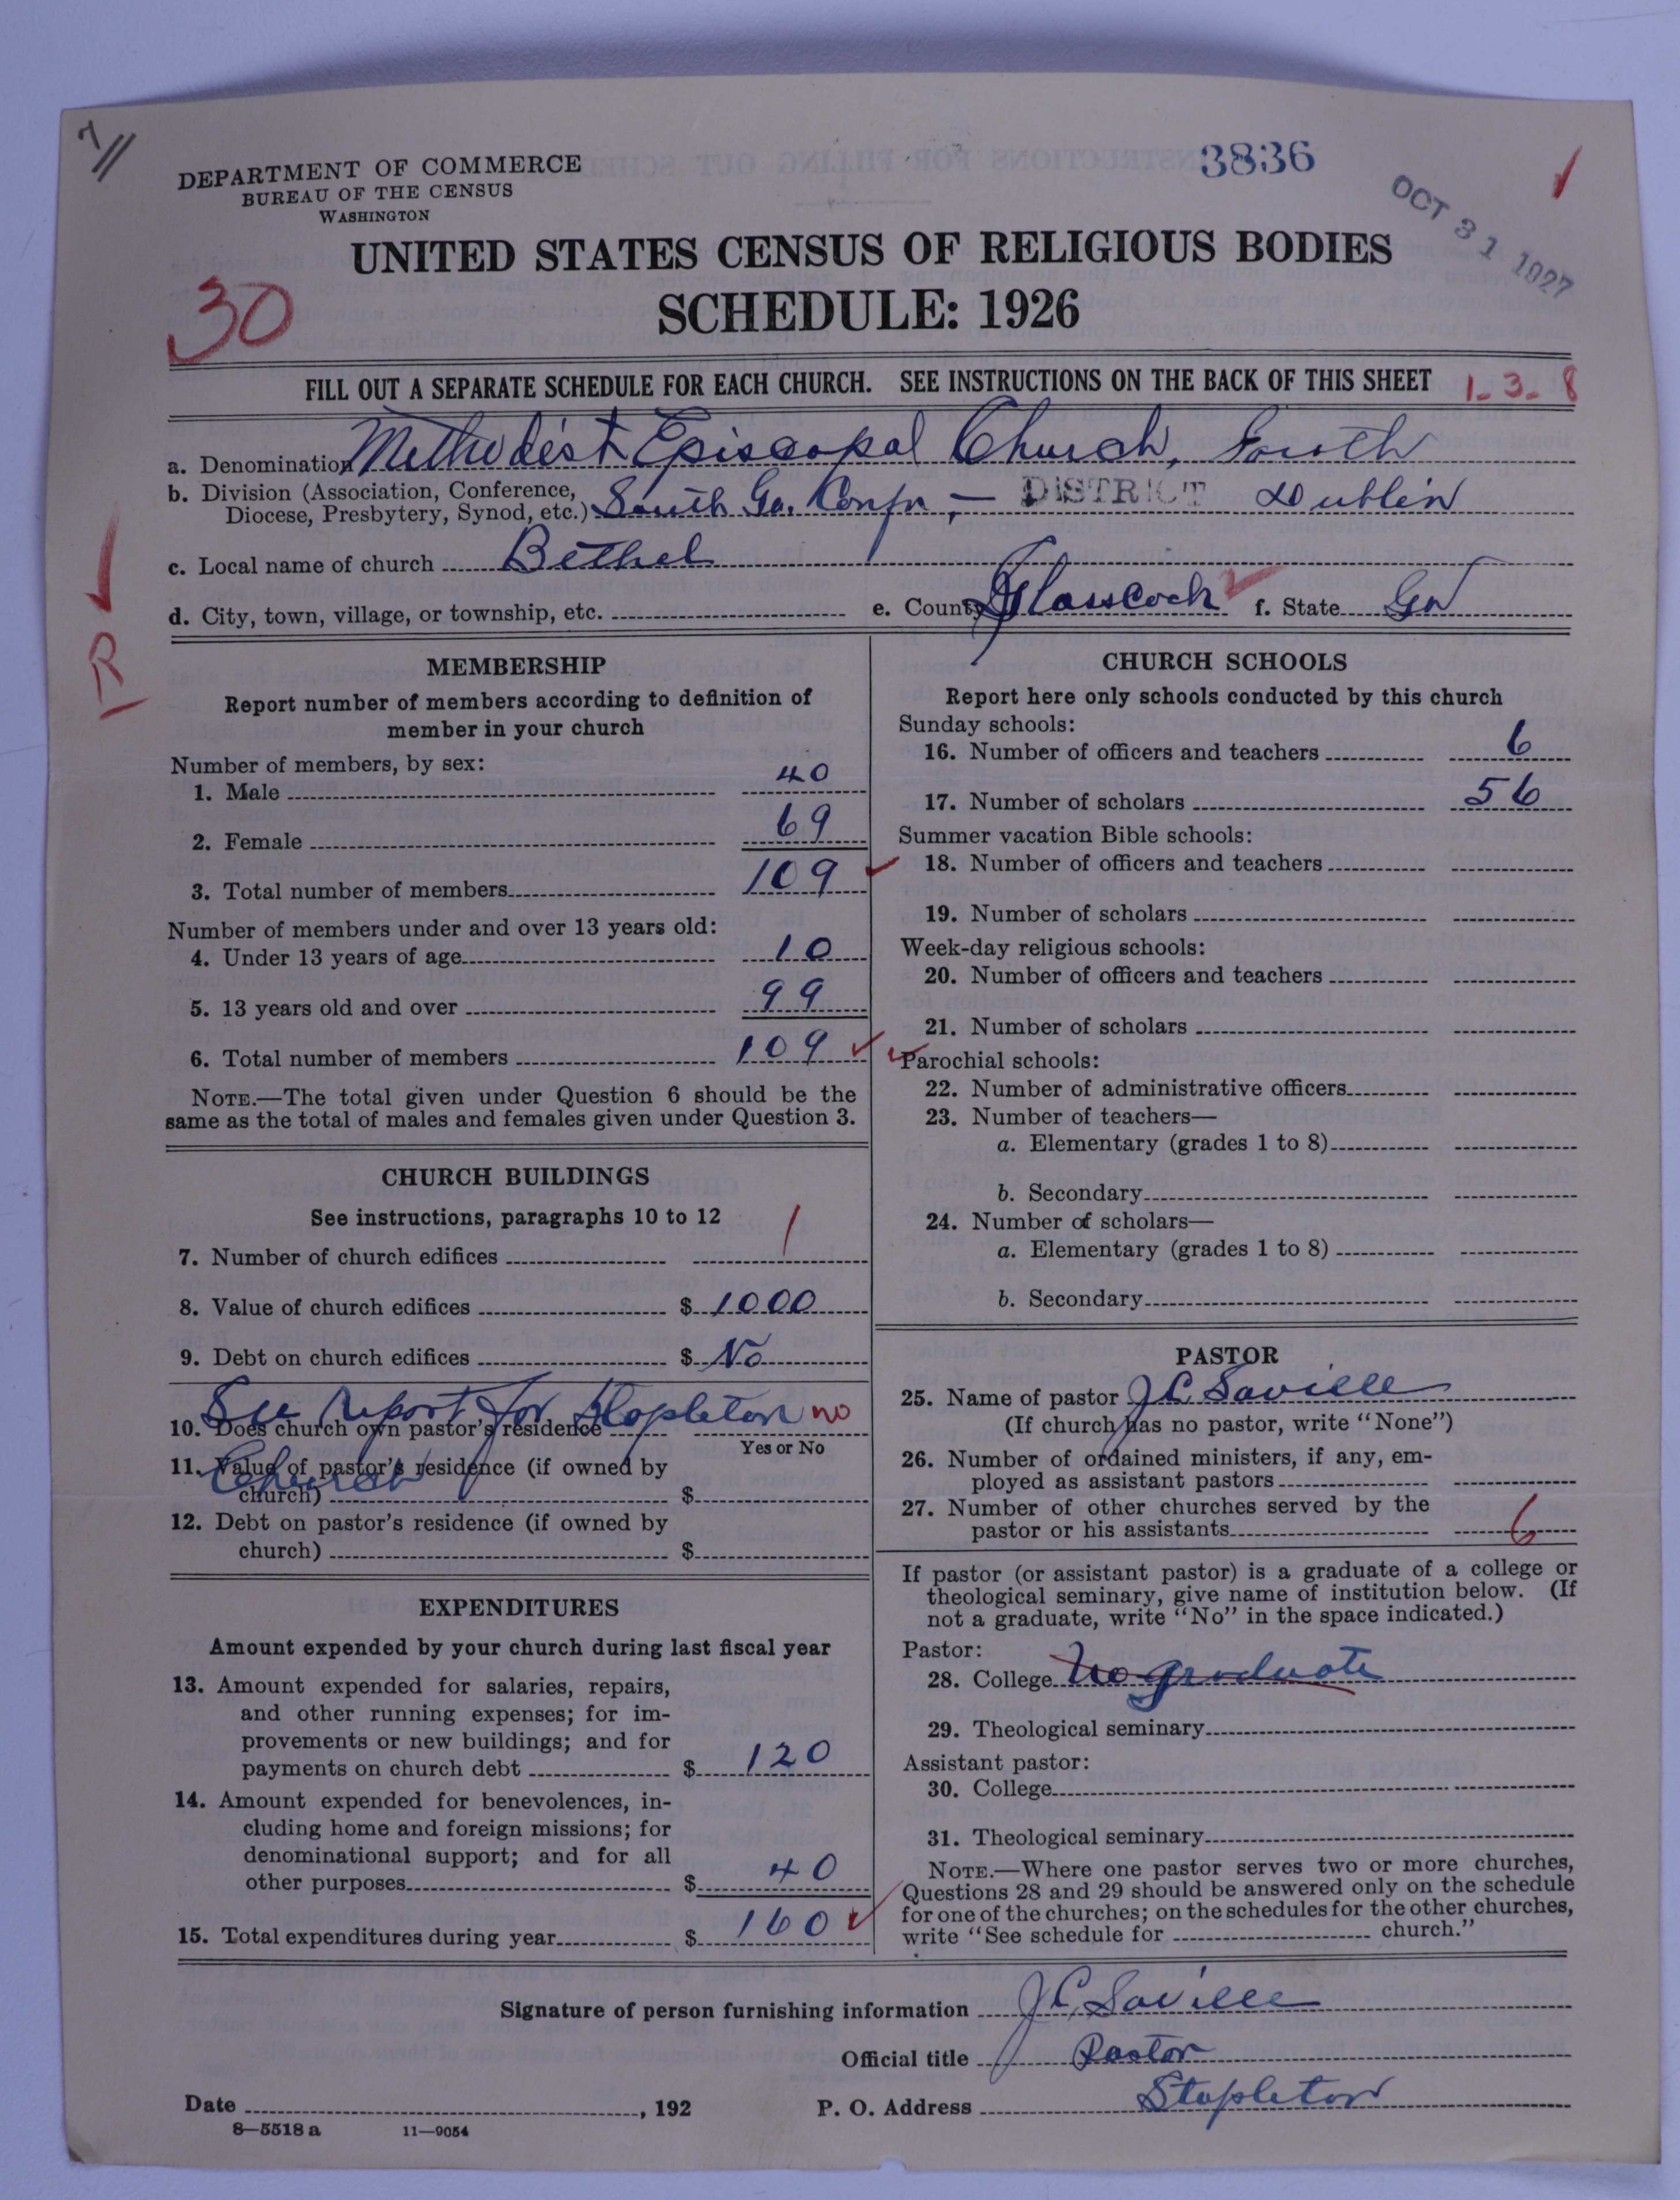 7//
DEPARTMENT OF COMMERCE
BUREAU OF THE CENSUS
WASHINGTON
3836
OCT 31 1927
UNITED STATES CENSUS OF RELIGIOUS BODIES
SCHEDULE: 1926
30
FILL OUT A SEPARATE SCHEDULE FOR EACH CHURCH. SEE INSTRUCTIONS ON THE BACK OF THIS SHEET 1-3-8
a. Denomination Methodist Episcopal Church, South
b. Division (Association, Conference, Diocese, Presbytery, Synod, etc.) South Ga. Confn, — DISTRICT Dublin
c. Local name of church Bethel
d. City, town, village, or township, etc. e. County Glasscock f. State Ga
R
MEMBERSHIP
Report number of members according to definition of
member in your church
Number of members, by sex:
1. Male 40
2. Female 69
3. Total number of members 109
Number of members under and over 13 years old:
4. Under 13 years of age 10
5. 13 years old and over 99
6. Total number of members 109
NOTE.—The total given under Question 6 should be the
same as the total of males and females given under Question 3.
CHURCH BUILDINGS
See instructions, paragraphs 10 to 12
7. Number of church edifices 1
8. Value of church edifices $ 1000
9. Debt on church edifices $ No
See report for Stapleton no
10. Does church own pastor's residence
Yes or No
Church
11. Value of pastor's residence (if owned by
church) $
12. Debt on pastor's residence (if owned by
church) $
EXPENDITURES
Amount expended by your church during last fiscal year
13. Amount expended for salaries, repairs,
and other running expenses; for im-
provements or new buildings; and for
payments on church debt $ 120
14. Amount expended for benevolences, in-
cluding home and foreign missions; for
denominational support; and for all
other purposes $ 40
15. Total expenditures during year $ 160
CHURCH SCHOOLS
Report here only schools conducted by this church
Sunday schools:
16. Number of officers and teachers 6
17. Number of scholars 56
Summer vacation Bible schools:
18. Number of officers and teachers
19. Number of scholars
Week-day religious schools:
20. Number of officers and teachers
21. Number of scholars
Parochial schools:
22. Number of administrative officers
23. Number of teachers—
a. Elementary (grades 1 to 8)
b. Secondary
24. Number of scholars—
a. Elementary (grades 1 to 8)
b. Secondary
PASTOR
25. Name of pastor J.C. Saville
(If church has no pastor, write "None")
26. Number of ordained ministers, if any, em-
ployed as assistant pastors
27. Number of other churches served by the
pastor or his assistants 6
If pastor (or assistant pastor) is a graduate of a college or
theological seminary, give name of institution below. (If
not a graduate, write "No" in the space indicated.)
Pastor:
28. College No graduate
29. Theological seminary
Assistant pastor:
30. College
31. Theological seminary
NOTE.—Where one pastor serves two or more churches,
Questions 28 and 29 should be answered only on the schedule
for one of the churches; on the schedules for the other churches,
write "See schedule for church."
Signature of person furnishing information J.C. Saville
Official title Pastor
Date , 192 P. O. Address Stapleton
8—5518 a 11—9054